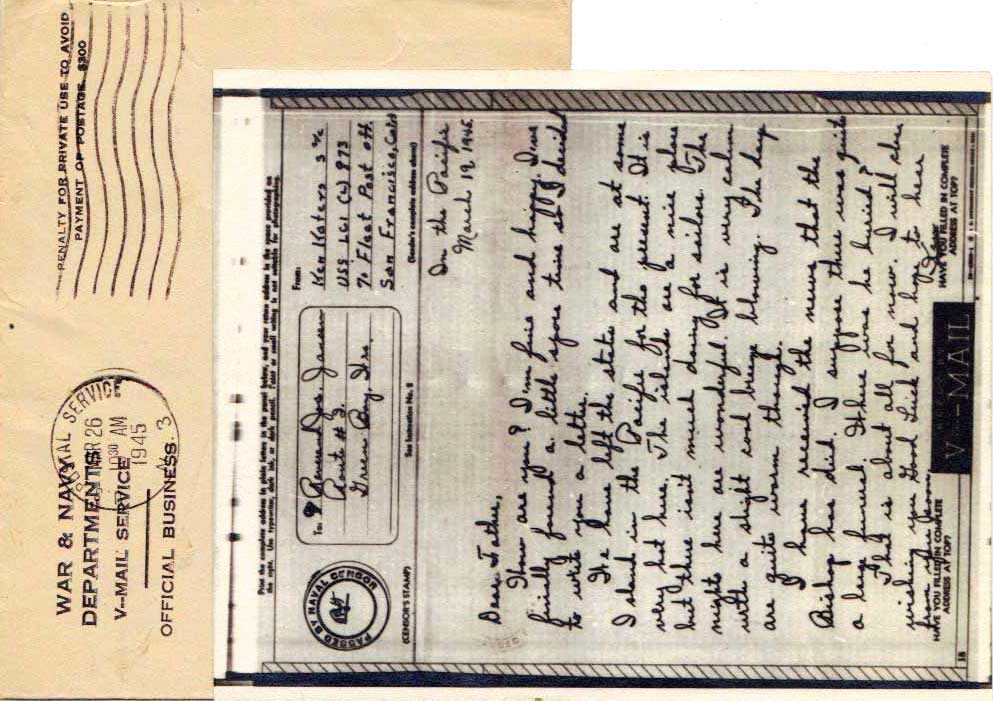 PENALTY FOR PRIVATE USE TO AVOID
PAYMENT OF POSTAGE $300
WAR & NAVY
DEPARTMENTS
V--MAIL SERVICE
OFFICIAL BUSINESS. 3
POSTAL SERVICE
MAR 26
10 30 AM
1945
Print the complete address in plain letters in the panel below, and your return address in the space provided on
the right.
PASSED BY NAVAL CENSOR
(CENSOR'S STAMP)
To: Reverend Jos. Jansen
Route # 3.
Green Bay, Wis
See Instruction No. 2
From:
Ken
USS LCI (L) 873
% Fleet Post Off.
San Francisco, Calif
(Sender's complete address above)
In the Pacific
March 19, 1945
Dear Father,
How are you? I'm fine and happy. I've
finally found a little spare time so I decided
to write you a letter.
We have left the states and are at some
Island in the Pacific for the present. It is
very hot here. The islands are a nice place
but there isn't much doing for sailors. The
nights here are wonderful. It is very calm
with a slight cool breeze blowing. The day
are quite warm though.
I have received the news that the
Bishop has died. I suppose there was quite
a large funeral. Where was he buried?
That is about all for now. I will close
wishing you Good Luck and hope to hear
from you soon.
HAVE YOU FILLED IN COMPLETE
ADDRESS AT TOP?
V--MAIL
HAVE YOU FILLED IN COMPLETE
ADDRESS AT TOP?